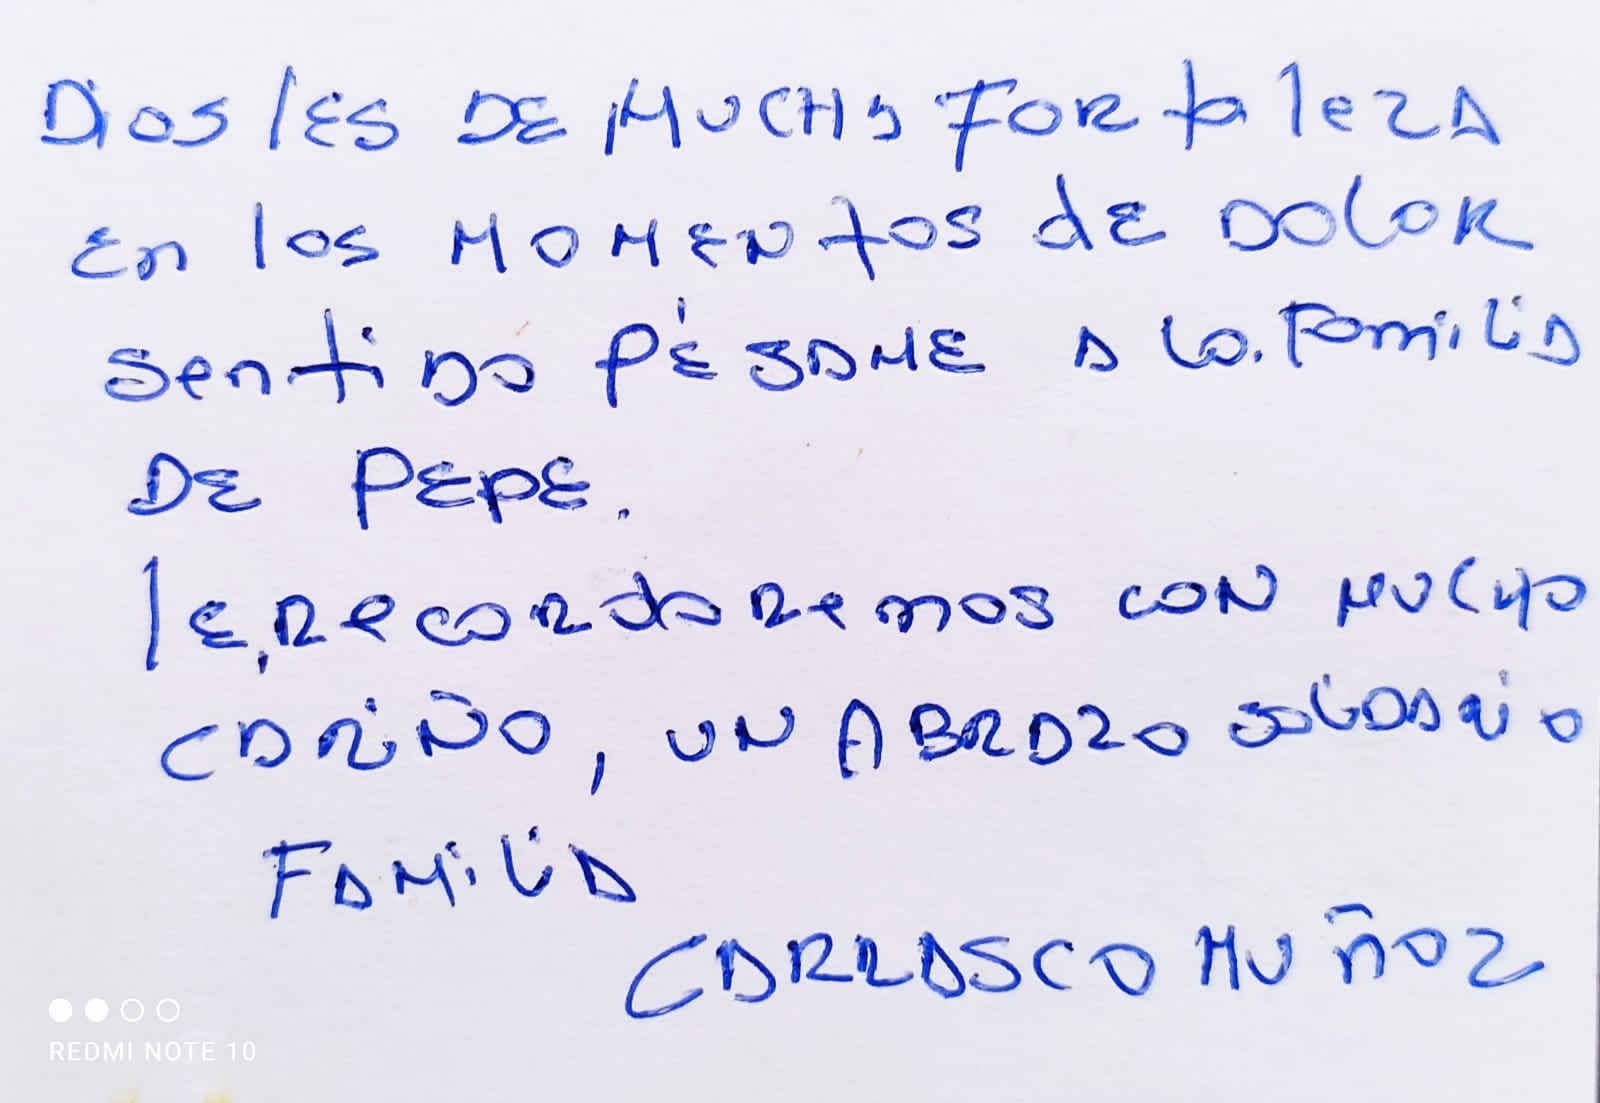 Dios les DE MUCHA FORtaleza
En los MOMENtos dE DOloR
Sentido PÉSAME A la. Familia
DE PEPE.
le, Recordaremos CON MUCHO
CARIÑO, UN ABRAZO solidario
FAMiliA
CARRASCO MUÑOZ
REDMI NOTE 10